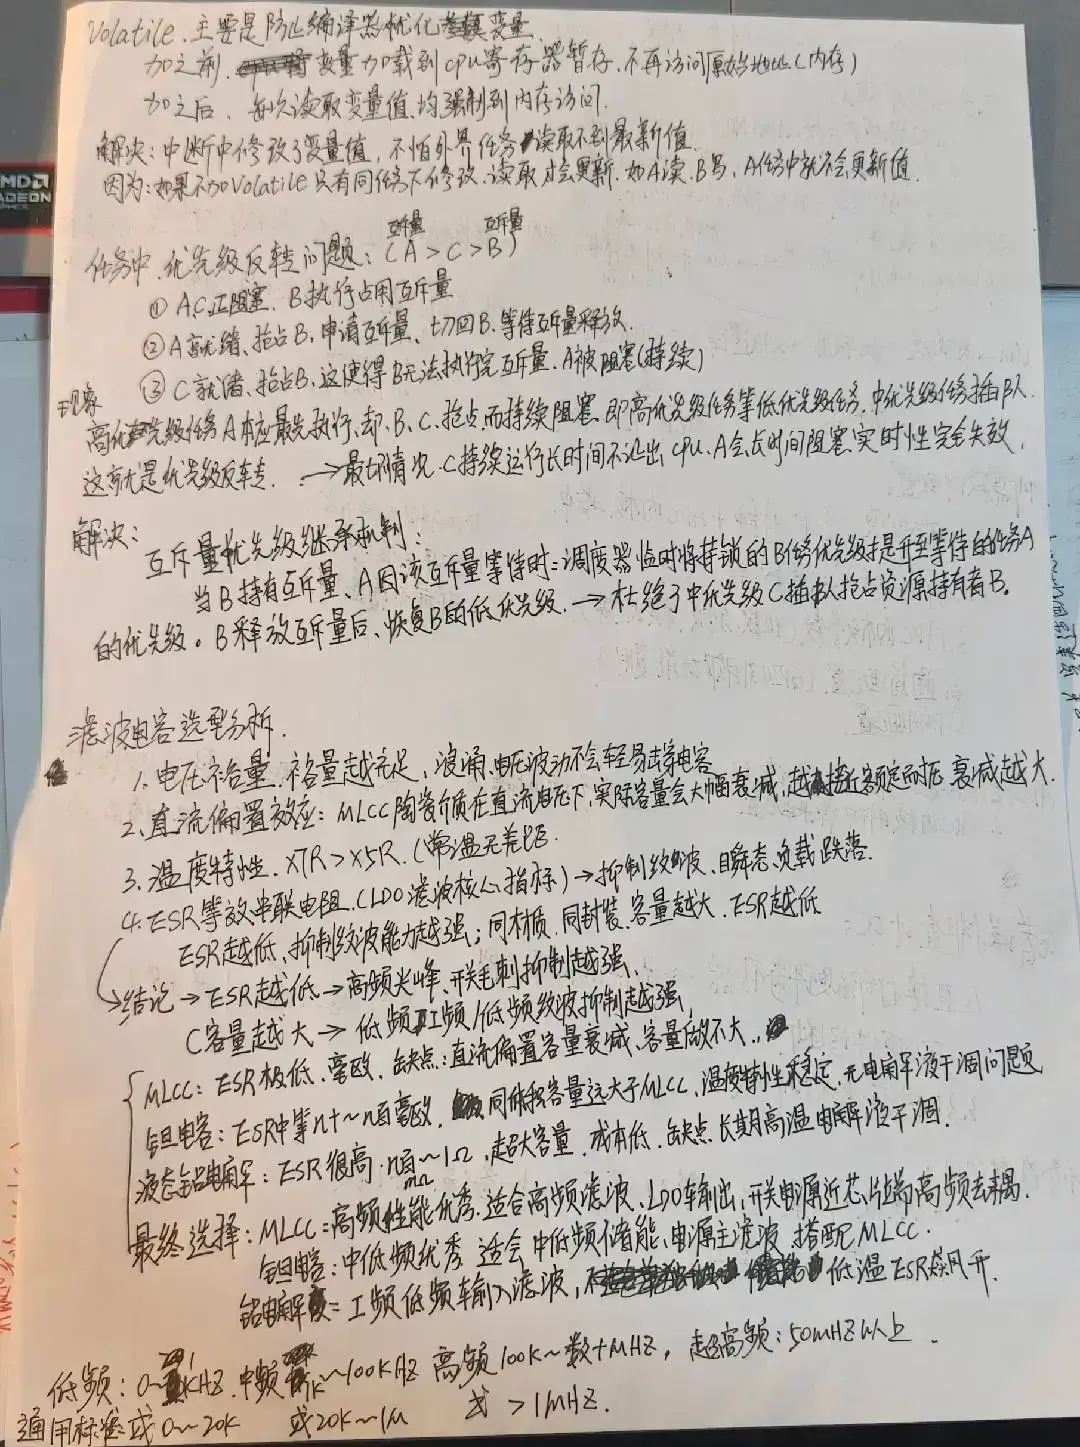 Volatile、主要是防止编译器优化变量
加之前、变量加载到cpu寄存器暂存、不再访问原始地址(内存)
加之后、每次读取变量值、均强制到内存访问.
解决：中断中修改了变量值，不怕外界任务读取不到最新值.
因为：如果不加Volatile只有同任务下修改、读取才会更新、如A读、B写，A任务中就不会更新值.
AMD
RADEON
互斥量 互斥量
任务中、优先级反转问题：(A > C > B)
① A.C.正阻塞、B执行占用互斥量
② A就绪、抢占B、申请互斥量、切回B、等待互斥量释放.
③ C就绪、抢占B、这使得B无法执行完互斥量、A被阻塞(持续)
现象
高优先级任务A本应最先执行、却、B、C、抢占而持续阻塞.即高优先级任务等低优先级任务，中优先级任务插队.
这就是优先级反转. → 最坏情况、C持续运行长时间不让出cpu、A会长时间阻塞、实时性完全失效.
解决：
互斥量优先级继承机制：
当B持有互斥量、A因该互斥量等待时：调度器临时将持锁的B任务优先级提升至等待的任务A
的优先级。B释放互斥量后、恢复B的低优先级. → 杜绝了中优先级C插队抢占资源持有者B。
滤波电容选型分析.
1. 电压裕量、裕量越充足，浪涌、电压波动不会轻易击穿电容
2、直流偏置效应：MLCC陶瓷介质在直流电压下，实际容量会大幅衰减，越接近额定耐压、衰减越大.
3、温度特性、X7R > X5R.(常温无差距
4. ESR等效串联电阻.(LDO滤波核心指标) → 抑制纹波、瞬态、负载跌落.
ESR越低、抑制纹波能力越强；同材质、同封装、容量越大、ESR越低
结论 → ESR越低 → 高频尖峰、开关毛刺抑制越强、
C容量越大 → 低频、工频/低频纹波抑制越强
MLCC：ESR极低、毫欧、缺点：直流偏置容量衰减、容量做不大.
钽电容：ESR中等n十~n百毫欧. 同体积容量远大于MLCC、温度特性稳定、无电解液干涸问题
液态铝电解：ESR很高.n百mΩ~1Ω，超大容量、成本低、缺点、长期高温电解液干涸.
最终选择：MLCC：高频性能优秀、适合高频滤波、LDO输出，开关电源近芯片端高频去耦.
钽电容：中低频优秀、适合中低频储能、电源主滤波、搭配MLCC.
铝电解：工频低频输入滤波， 低温ESR飙升.
低频：0~1KHZ 中频 1K~100KHZ 高频 100K~数十MHZ，超高频：50MHZ以上.
通用标准或0~20K 或20K~1M 或 >1MHZ.